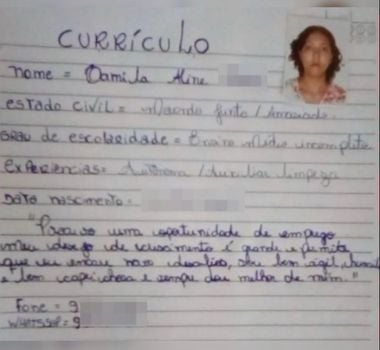 CURRÍCULO
nome = Damila Aline
estado civil = Morando junto / Amasiado
GRAU de escolaridade = Ensino Médio incompleto
Experiencias = Autônoma / Auxiliar limpeza
DATA nascimento =
"Procuro uma oportunidade de emprego
meu desejo de crescimento é grande e permite
que eu encare novo desafios, sou bem ágil,
e bem caprichosa e sempre dou melhor de mim."
Fone = 9
WHATSSAP = 9